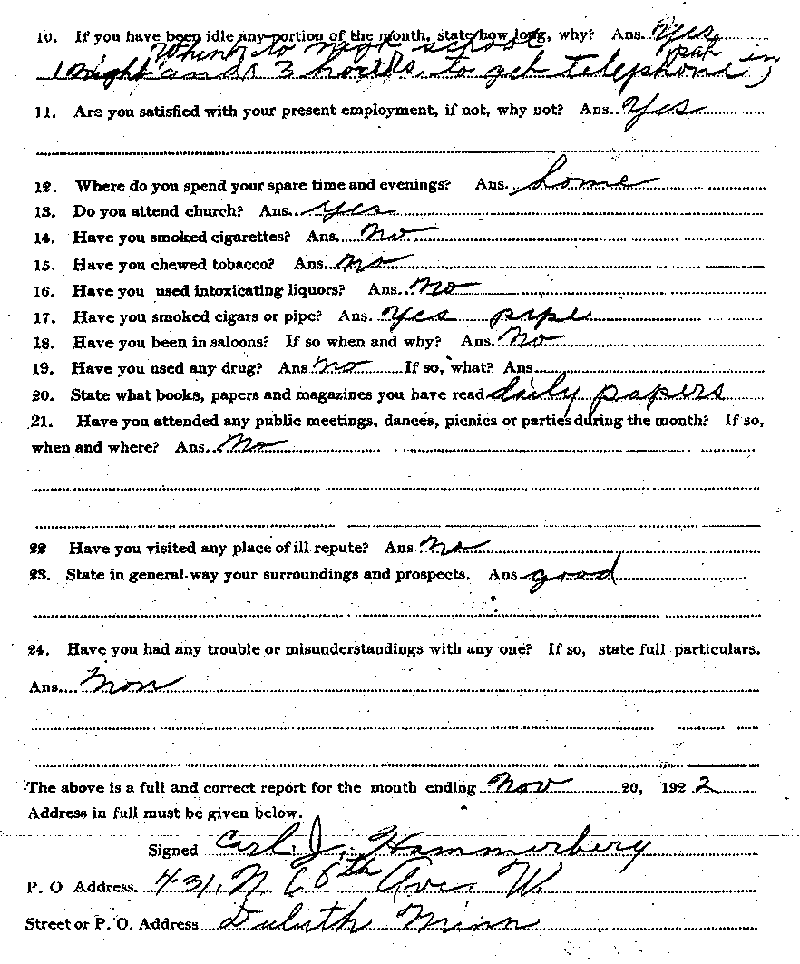 10. If you have been idle any portion of the month, state how long, why? Ans. Yes
to night school
1 night and 3 hours, to get telephone put in
11. Are you satisfied with your present employment, if not, why not? Ans. Yes
12. Where do you spend your spare time and evenings? Ans. home
13. Do you attend church? Ans. yes
14. Have you smoked cigarettes? Ans. no
15. Have you chewed tobacco? Ans. no
16. Have you used intoxicating liquors? Ans. no
17. Have you smoked cigars or pipe? Ans. yes pipe
18. Have you been in saloons? If so when and why? Ans. no
19. Have you used any drug? Ans no If so, what? Ans.
20. State what books, papers and magazines you have read daily papers
21. Have you attended any public meetings, dances, picnics or parties during the month? If so,
when and where? Ans. no
22 Have you visited any place of ill repute? Ans no
23. State in general way your surroundings and prospects. Ans good
24. Have you had any trouble or misunderstandings with any one? If so, state full particulars.
Ans. Non
The above is a full and correct report for the month ending Nov 20, 1922
Address in full must be given below.
Signed Carl. J. Hammerberg
P. O Address. 431. N 66th Ave. W
Street or P. O. Address Duluth Minn